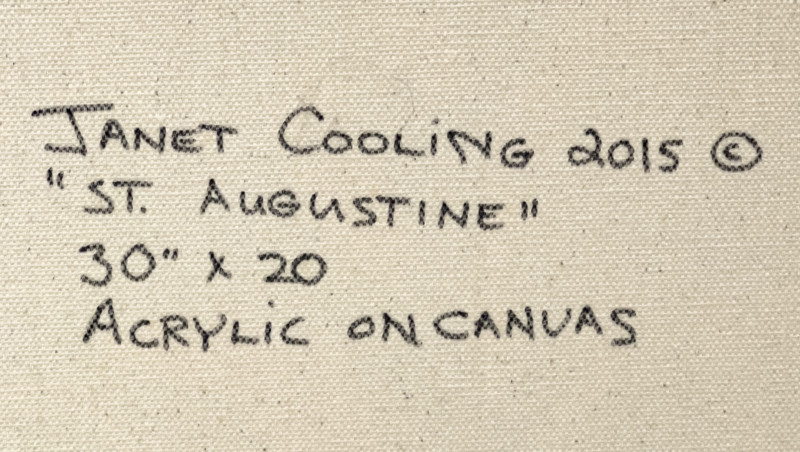 JANET COOLiNG 2015 ©
"ST. AUGUSTINE"
30" X 20
ACRYLiC ON CANVAS